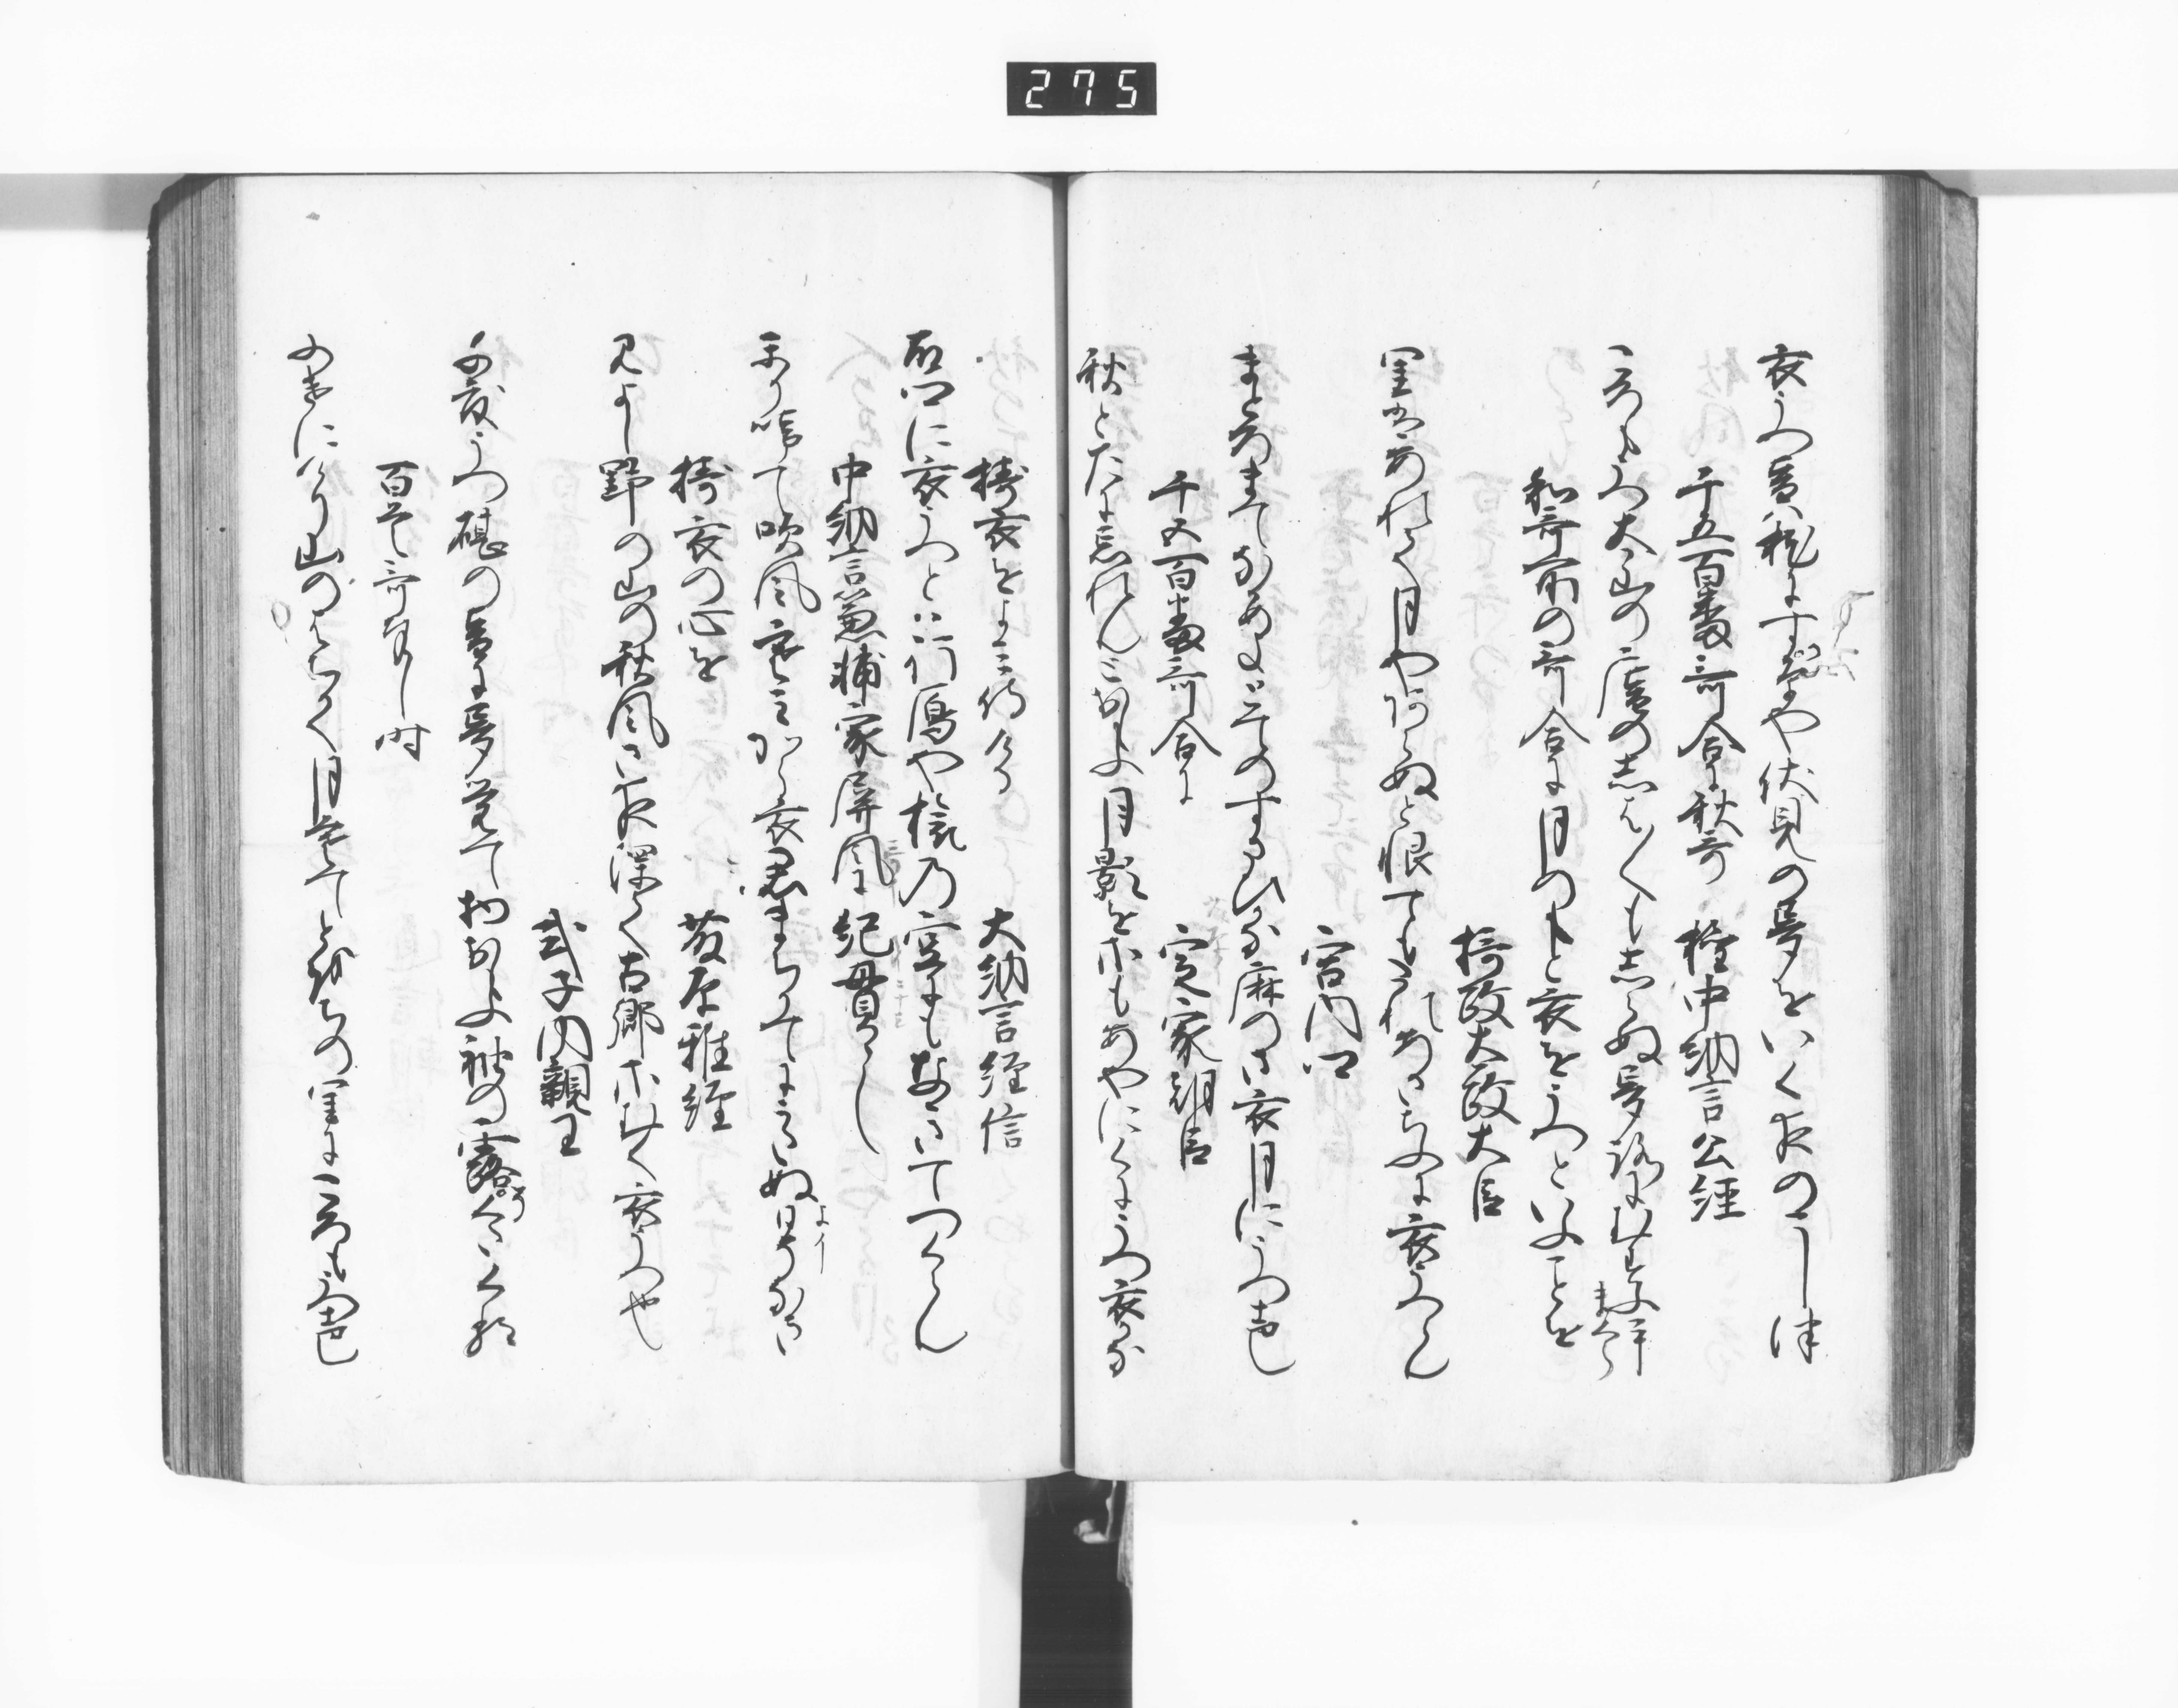 275
衣うつ音は枕にすかはらや伏見の夢をいく夜のこしつ
千五百番哥合に秋哥　権中納言公経
ころもうつみ山の庵のしは〳〵もしらぬ夢路にむすふ手
まくら
和哥所の哥合に月のもとに衣をうつといふことを
摂政太政大臣
里はあれて月やあらぬと恨てもたれあさちふに衣うつらん
宮内卿
まとろまてなかめよとてのすさひかな麻のさ衣月にうつ声
千五百番哥合に　定家朝臣
秋とたに忘れんとおもふ月影をさもあやにくにうつ衣かな
擣衣をよみ侍ける　大納言経信
故郷に衣うつとは行鴈や旅の空にもなきてつくらん
中納言兼輔家屏風に　紀貫之
鴈啼て吹風寒みから衣君まちかてにうたぬ
擣衣の心を　藤原雅経
みよし野の山の秋風さ夜深て古郷さむく衣うつ也
式子内親王
千度うつ砧の音に夢覚て物おもふ袖の露そくたくる
百首哥奉し時
ふけにけり山のはちかく月さえてとをちの里に衣うつ声